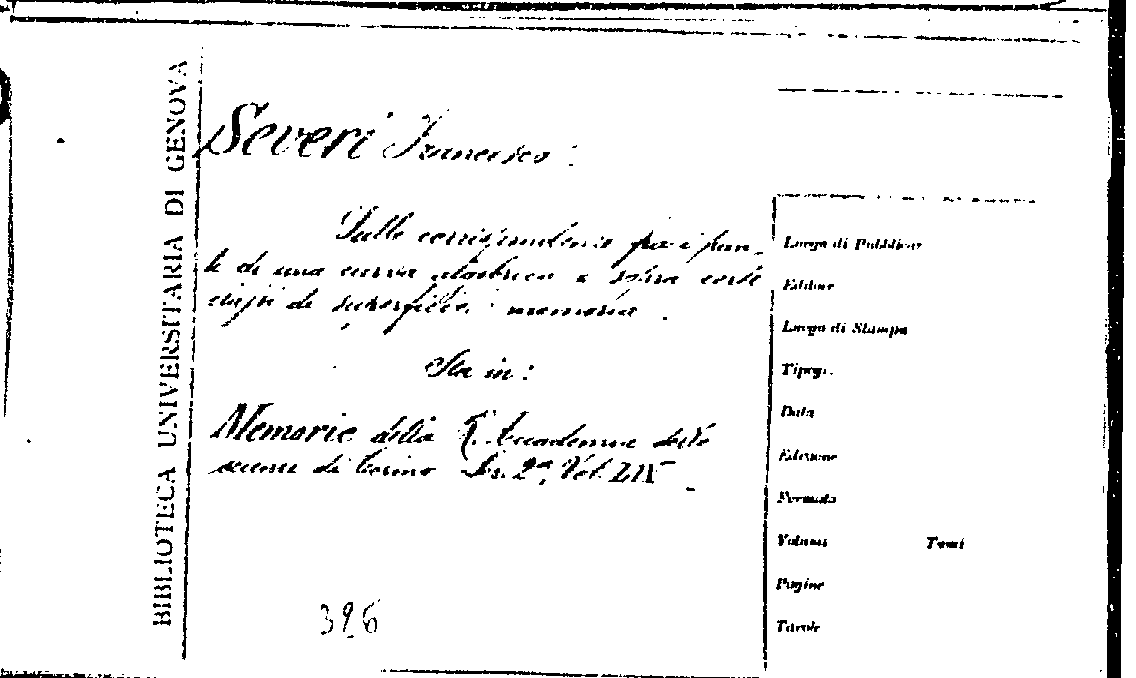 BIBLIOTECA UNIVERSITARIA DI GENOVA
Severi Francesco
Sulle corrispondenze fra i pun-
ti di una curva algebrica e sopra certe
classi di superficie. memoria.
Sta in:
Memorie della R. Accademia delle
scienze di Torino Ser. 2ª, Vol. LIV
396
Luogo di Pubblicaz
Editore
Luogo di Stampa
Tipogr.
Data
Edizione
Formato
Volumi Tomi
Pagine
Tavole